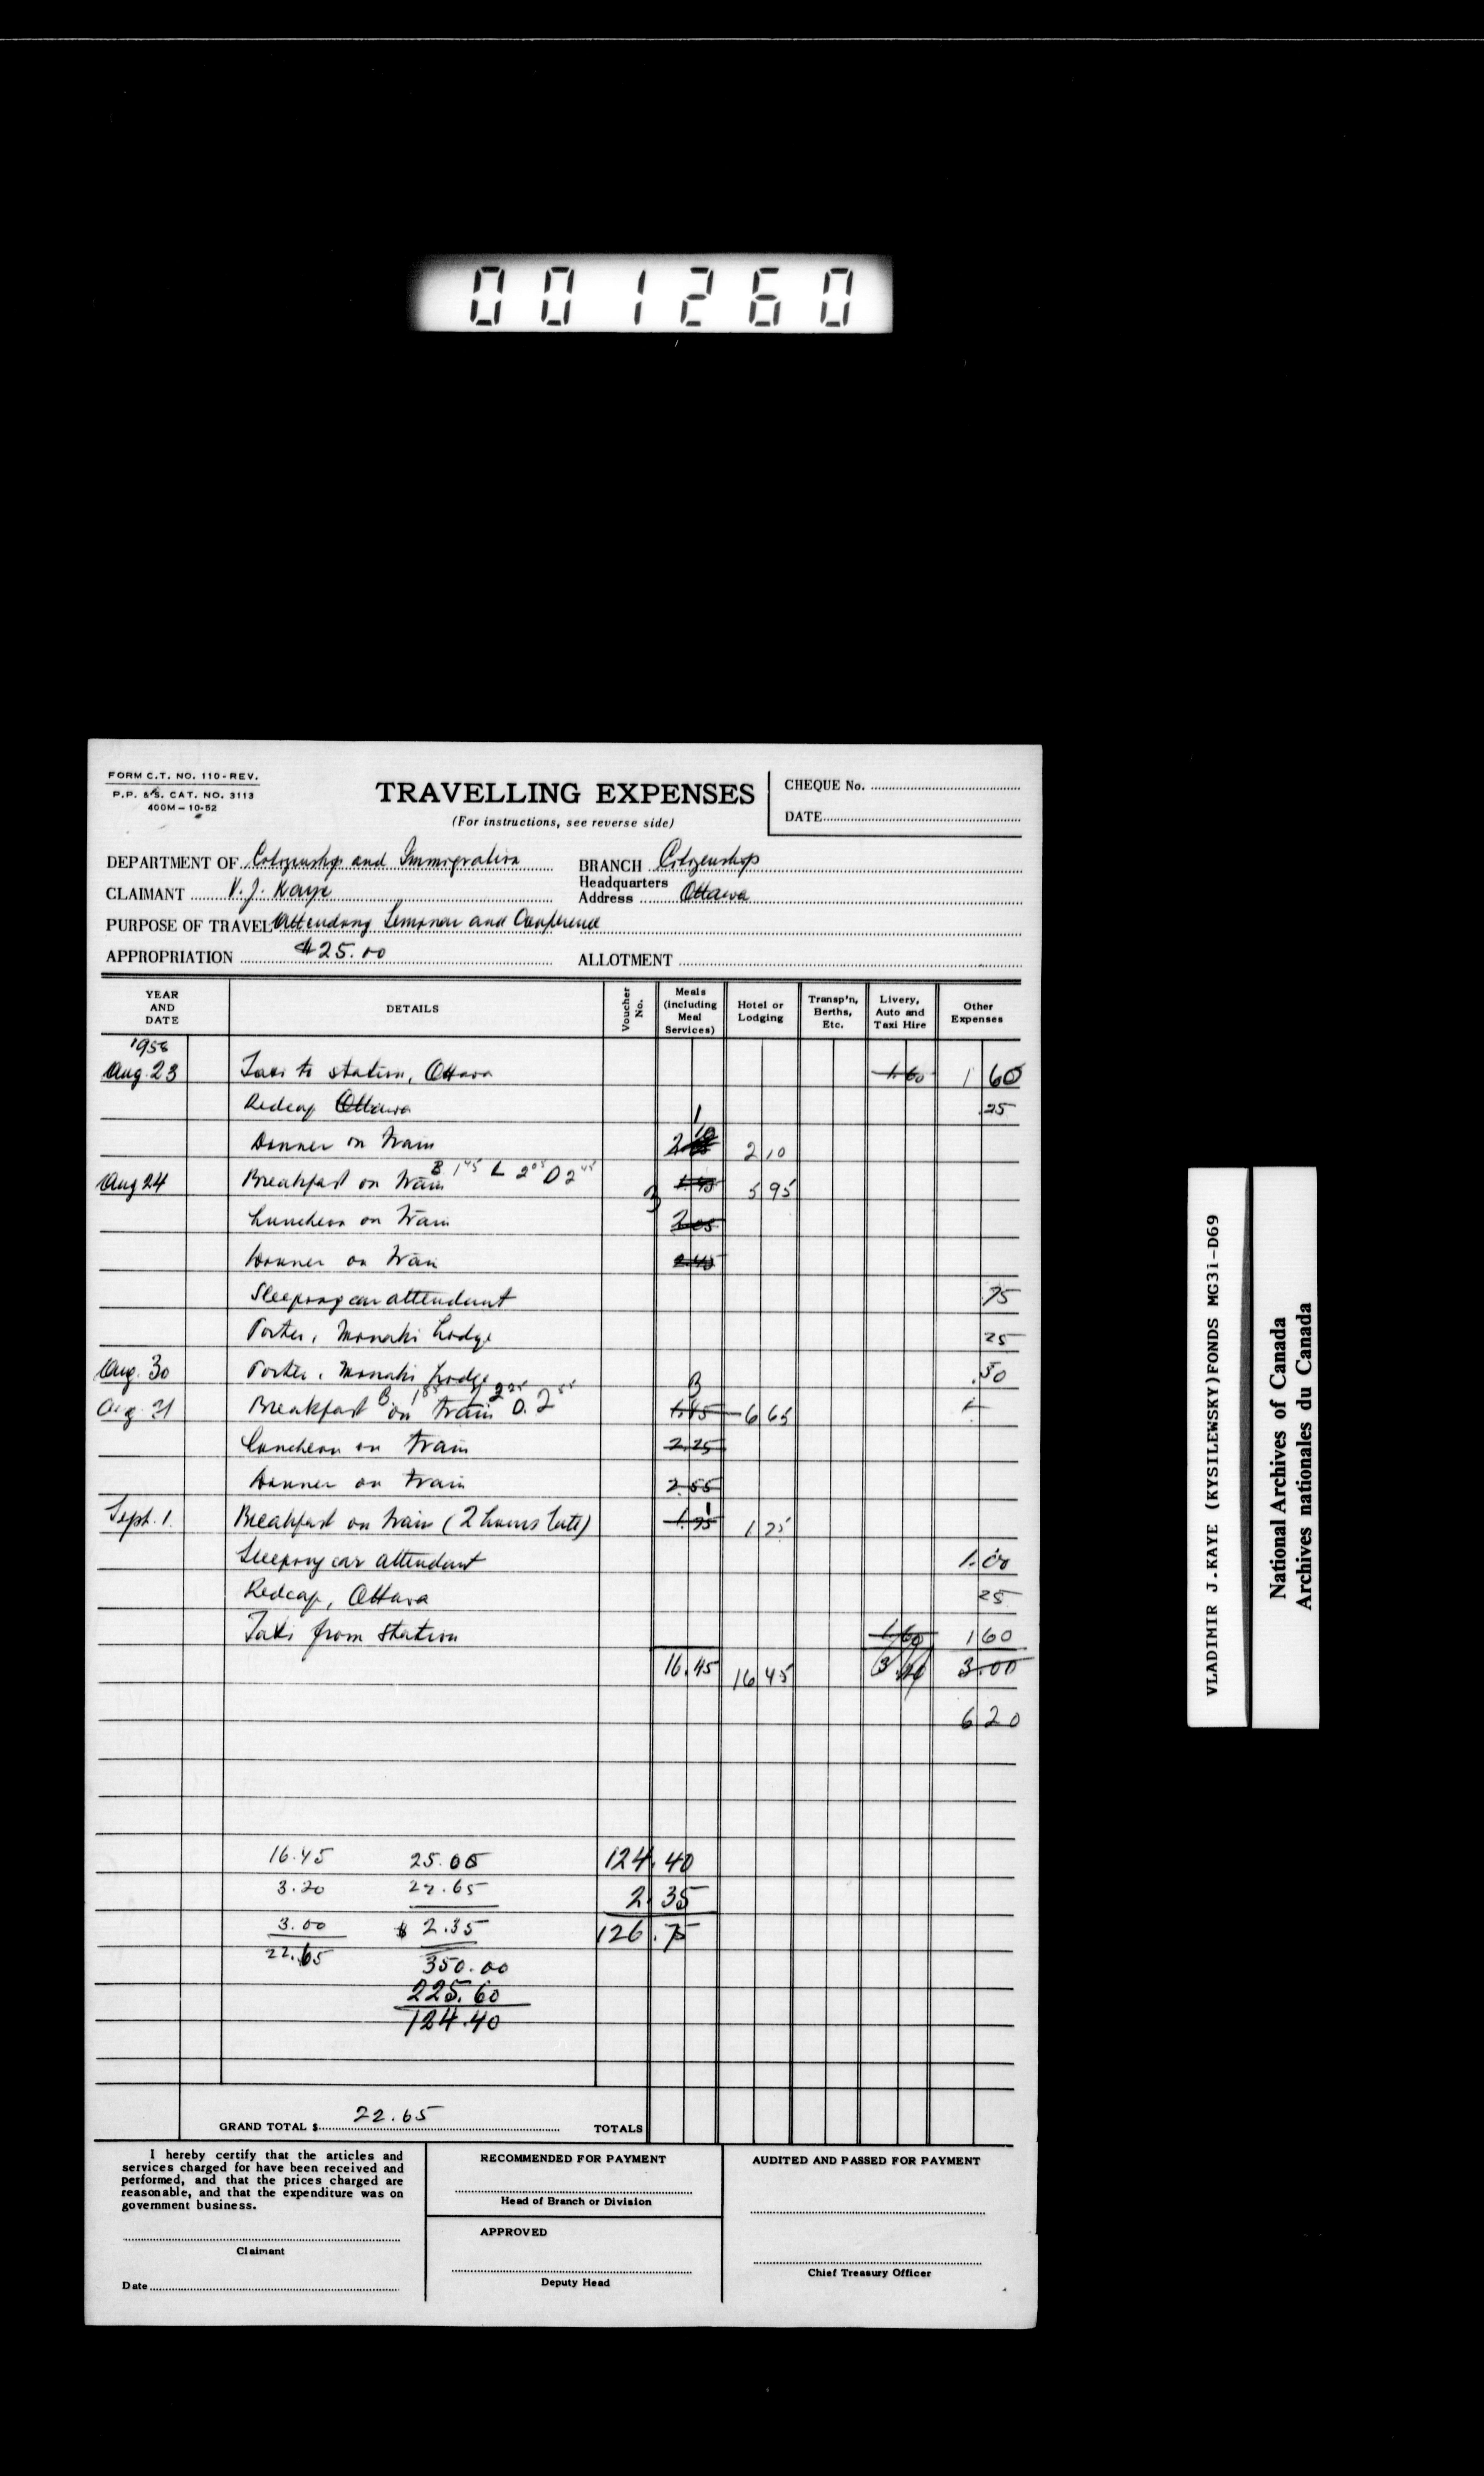 001260
FORM C.T. NO. 110-REV.
P.P. & S. CAT. NO. 3113
400M-10-52
TRAVELLING EXPENSES
(For instructions, see reverse side)
CHEQUE No.
DATE
DEPARTMENT OF Citizenship and Immigration
BRANCH Citizenship
CLAIMANT V. J. Kaye
Headquarters Address Ottawa
PURPOSE OF TRAVEL Attending Seminar and Conference
APPROPRIATION $25.00
ALLOTMENT
YEAR AND DATE DETAILS Voucher No. Meals (including Meal Services) Hotel or Lodging Transp'n, Berths, Etc. Livery, Auto and Taxi Hire Other Expenses
1956
Aug. 23 Taxi to station, Ottawa 1.60 1 60
Redcap Ottawa .25
1
Dinner on train 2 10 2 10
B 1 45 L 2 05 D 2 45
Aug 24 Breakfast on train 3 1.45 5 95
Luncheon on train 2.05
Dinner on train 2.45
Sleeping car attendant .75
Porter, Minaki Lodge 25
Aug. 30 Porter, Minaki Lodge .50
B. 1 85 L 2 25 D. 2 55 3
Aug. 31 Breakfast on train 1.85 6 65
Luncheon on train 2.25
Dinner on train 2.55
Sept. 1. Breakfast on train (2 hours late) 1.75 1 1 75
Sleeping car attendant 1.00
Redcap, Ottawa 25
Taxi from station 1.60 1 60
16.45 16 45 3.20 3.00
6 20
16.45 25.00 124.40
3.20 22.65 2.35
3.00 $ 2.35 126.75
22.65 350.00
225.60
124.40
GRAND TOTAL $ 22.65 TOTALS
I hereby certify that the articles and
services charged for have been received and
performed, and that the prices charged are
reasonable, and that the expenditure was on
government business.
Claimant
Date
RECOMMENDED FOR PAYMENT
Head of Branch or Division
APPROVED
Deputy Head
AUDITED AND PASSED FOR PAYMENT
Chief Treasury Officer
VLADIMIR J.KAYE (KYSILEWSKY)FONDS MG31-D69
National Archives of Canada
Archives nationales du Canada